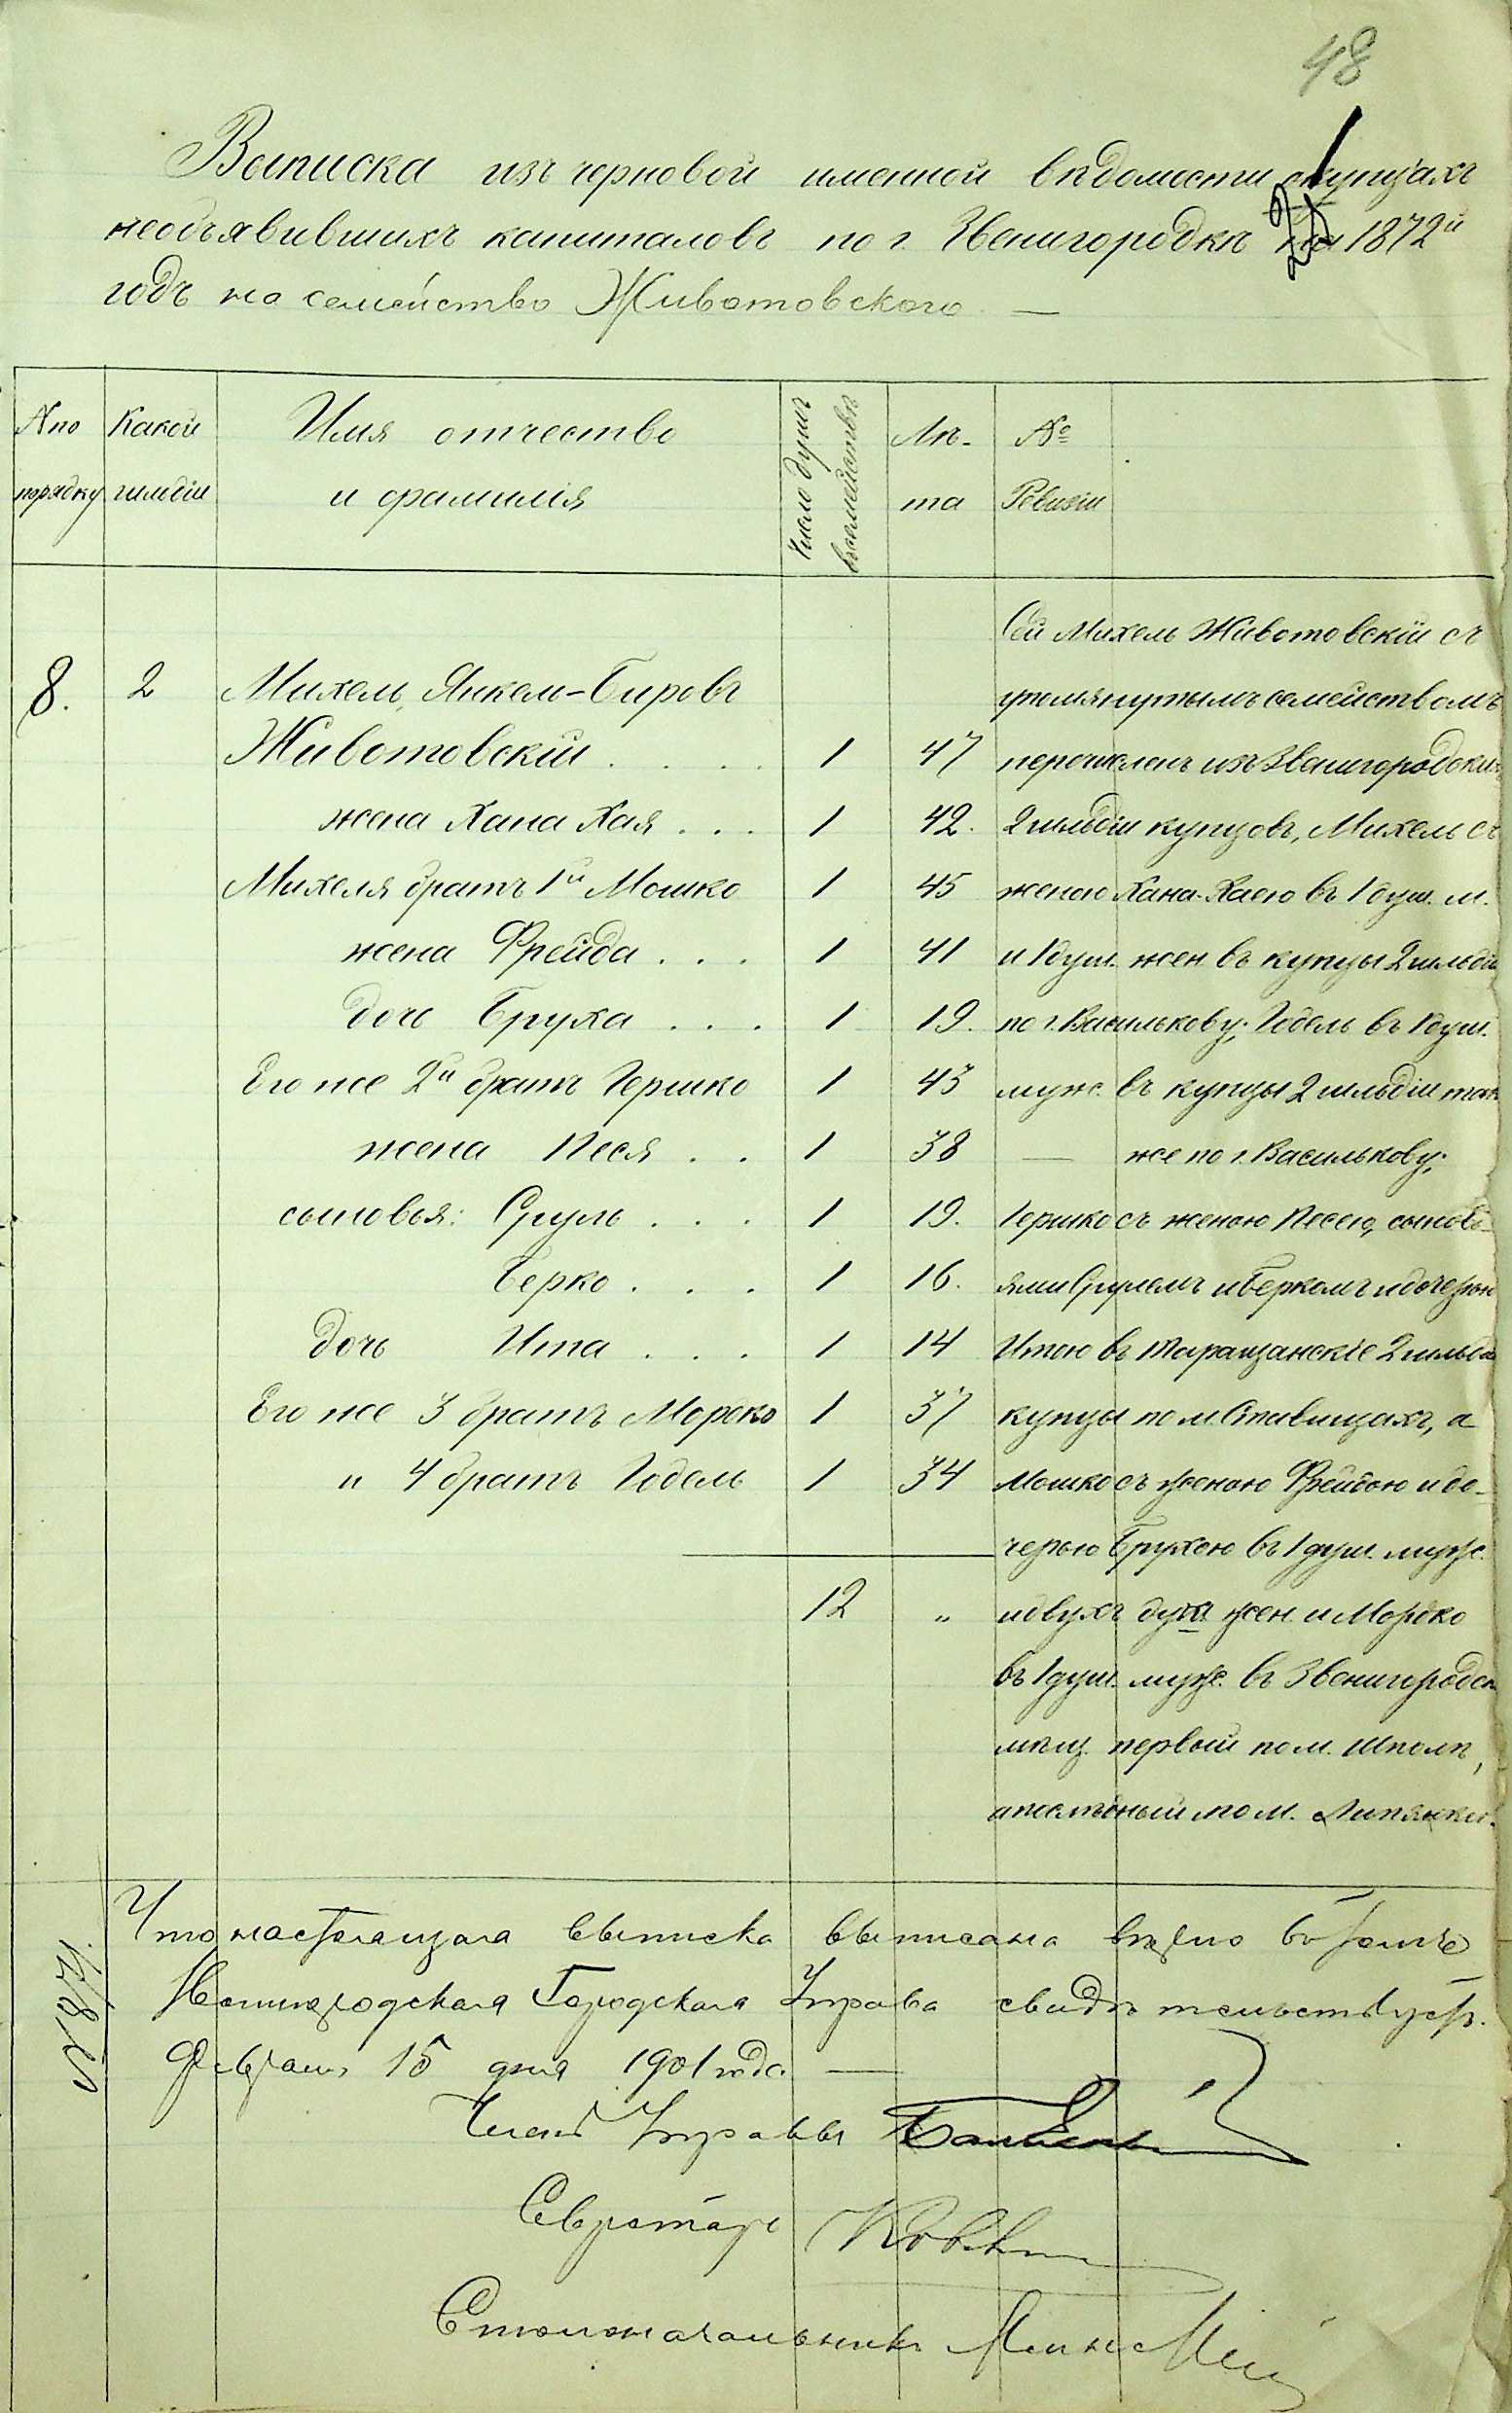 48
Выписка изъ черновой именной вѣдомости о купцахъ
необъявившихъ капиталовъ по г. Звенигородкѣ на 1872й
годъ на семейство Животовскаго. —
№ по порядку
Какой гильдіи
Имя отчество и фамилія
Число душъ въ семействѣ
Лѣ-та
№ Ревизіи
8. 2 Михель Янкель-Беровъ
Животовскій . . . . 1 47
жена Хана Хая . . . 1 42.
Михеля братъ 1й Мошко 1 45
жена Фрейда . . . 1 41
дочь Бруха . . . 1 19.
Его же 2й братъ Гершко 1 43
жена Песя . . 1 38
сыновья: Сруль . . . 1 19.
Берко . . . 1 16.
дочь Ита . . . 1 14
Его же 3 братъ Мордко 1 37
" 4 братъ Годель 1 34
12 "
Сей Михель Животовскій съ
упомянутымъ семействомъ
перечисленъ изъ Звенигородских
2 гильдіи купцовъ, Михель съ
женою Хана-Хаею въ 1 душ. м.
и 1 душ. жен въ купцы 2 гильдіи
по г. Василькову; Годель въ 1 душ.
муж. въ купцы 2 гильдіи так
— же по г. Василькову;
Гершко съ женою Песею, сыновь-
ями Срулемъ и Беркомъ и дочерью
Итою въ Таращанскіе 2 гильдіи
купцы по м Ставищахъ, а
Мошко съ женою Фрейдою и до-
черью Брухою въ 1 душ. муж.
и двухъ душ. жен. и Мордко
въ 1 душ. муж. въ Звенигородск
мѣщ. первый по м. Шполѣ,
а послѣдный по м. Липянки.
№ 187
Что настоящая выписка выписана вѣрно въ томъ
Звенигородская Городская Управа свидѣтельствуетъ.
Февраля 15 дня 1901 года. —
Членъ Управы
Секретарь
Столоначальникъ